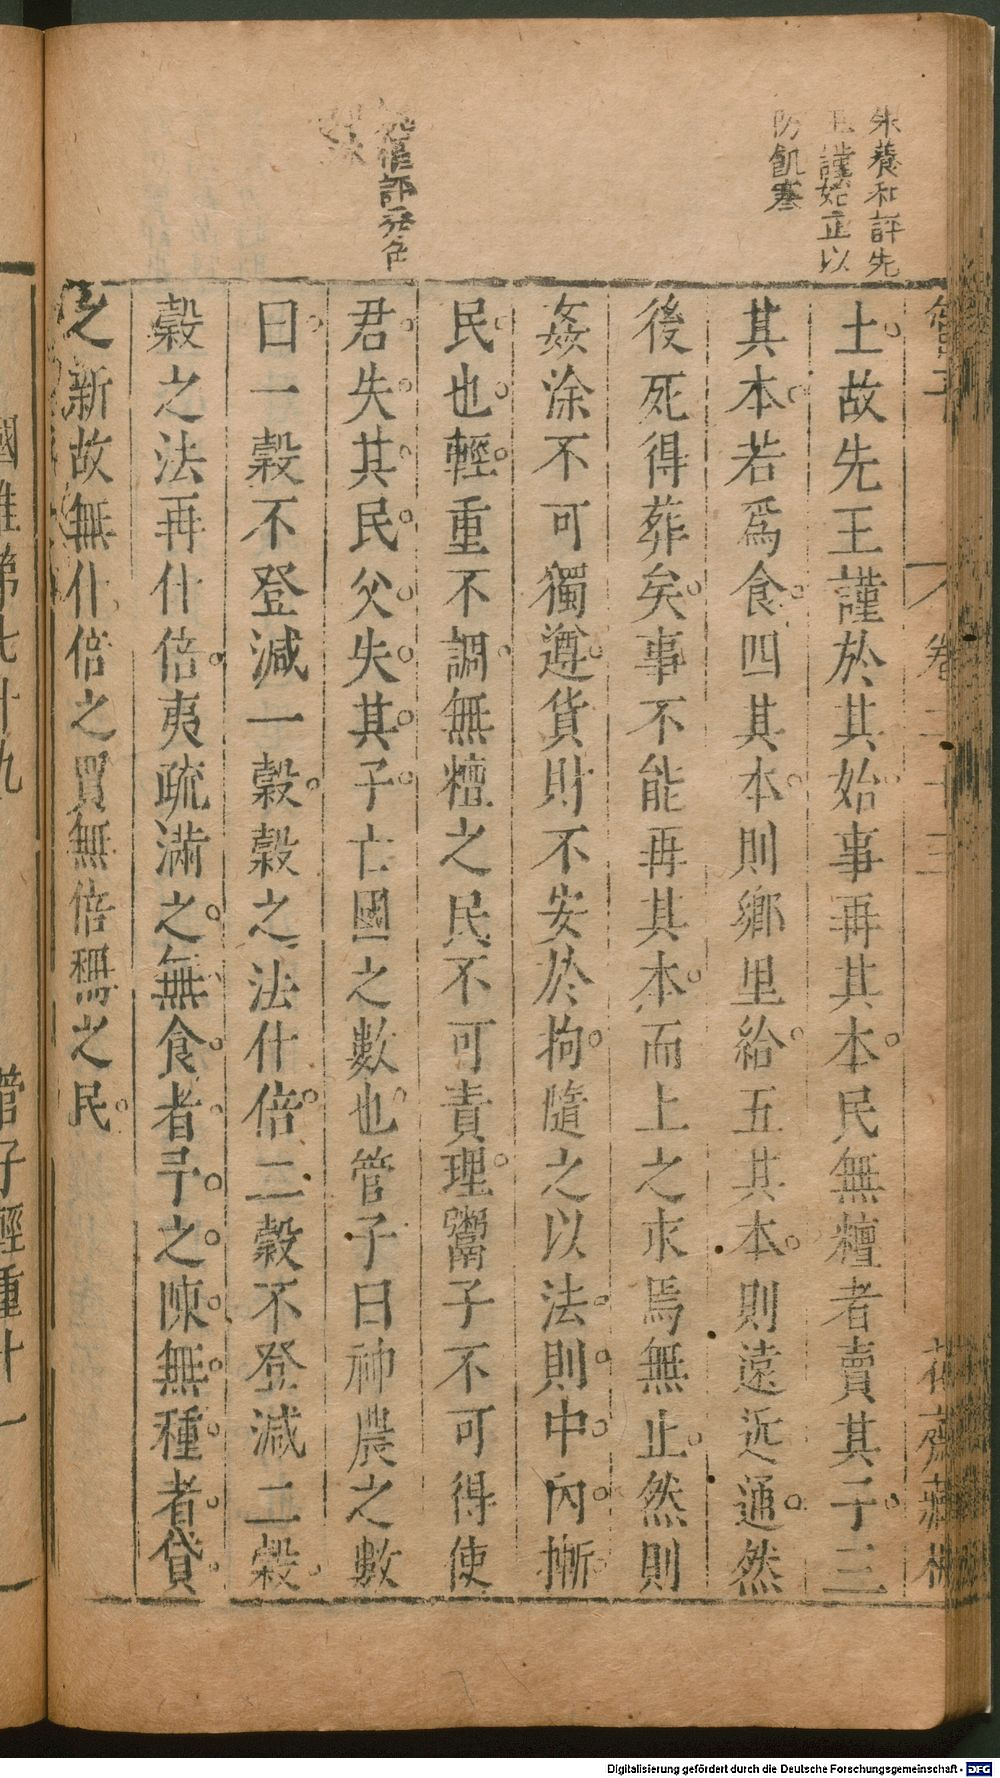 朱養和評先
王謹始正以
防飢寒
評
土故先王謹於其始事再其本民無䊤者賣其子三
其本若爲食四其本則鄉里給五其本則遠近通然
後死得葬矣事不能再其本而上之求焉無止然則
姦涂不可獨遵貨財不安於拘隨之以法則中內摲
民也輕重不調無䊤之民不可責理鬻子不可得使
君失其民父失其子亡國之數也管子曰神農之數
曰一穀不登減一穀穀之法什倍二穀不登減二穀
穀之法再什倍夷疏滿之無食者予之陳無種者貸
之新故無什倍之買無倍稱之民
管子
卷二十三
花齋藏板
國准第七十九
管子輕重十一
Digitalisierung gefördert durch die Deutsche Forschungsgemeinschaft - DFG